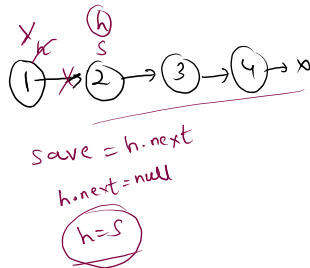 h
x h s
1 2 3 4
save = h.next
h.next = null
h = s